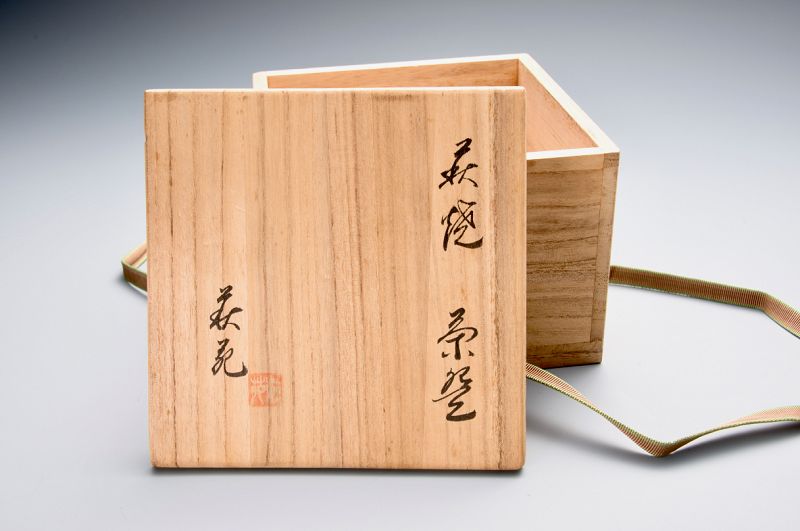 萩焼 茶盌
萩苑